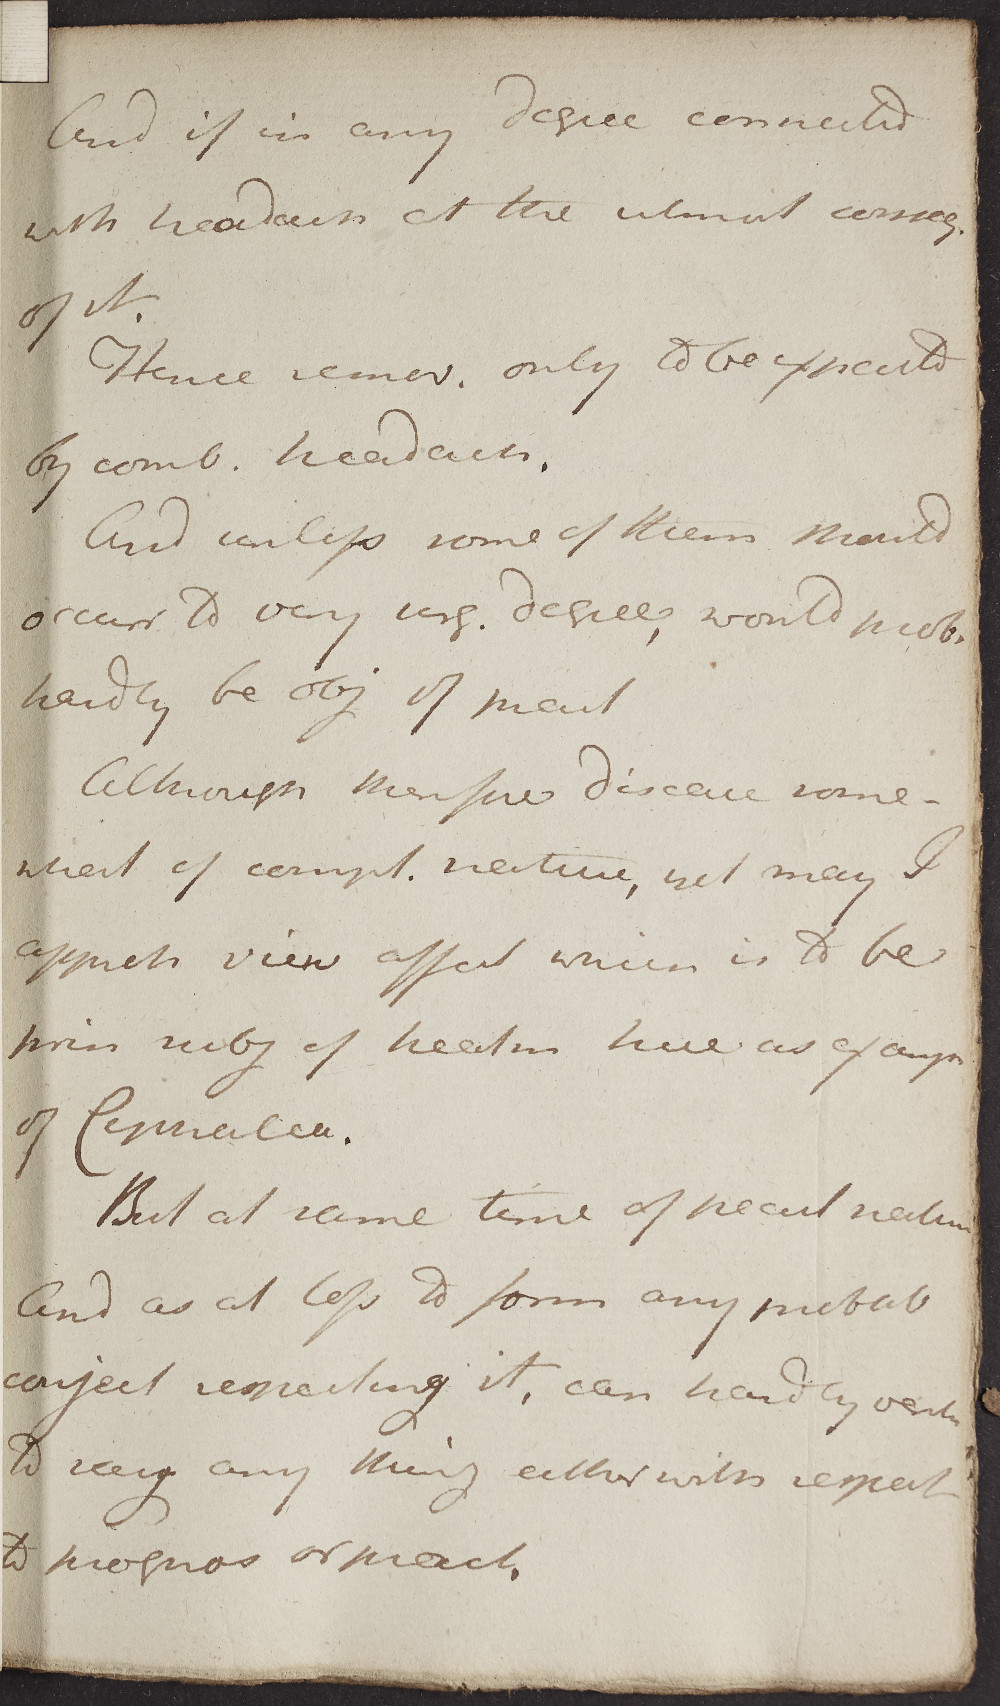 And if in any degree connected
with headach at the utmost conseq.
of it.
Hence remov. only to be expected
by comb. headach.
And unless some of them should
occurr to very urg. degree, would prob.
hardly be obj of pract
Although therefore disease some-
what of compl. nature, yet may I
appreh view affect which is to be
prin subj of health here as examp
of Cephalea.
But at same time of pecul natur
And as at loss to form any probab
conject respecting it, can hardly ventu
to say any thing either with respect
to prognos or pract.